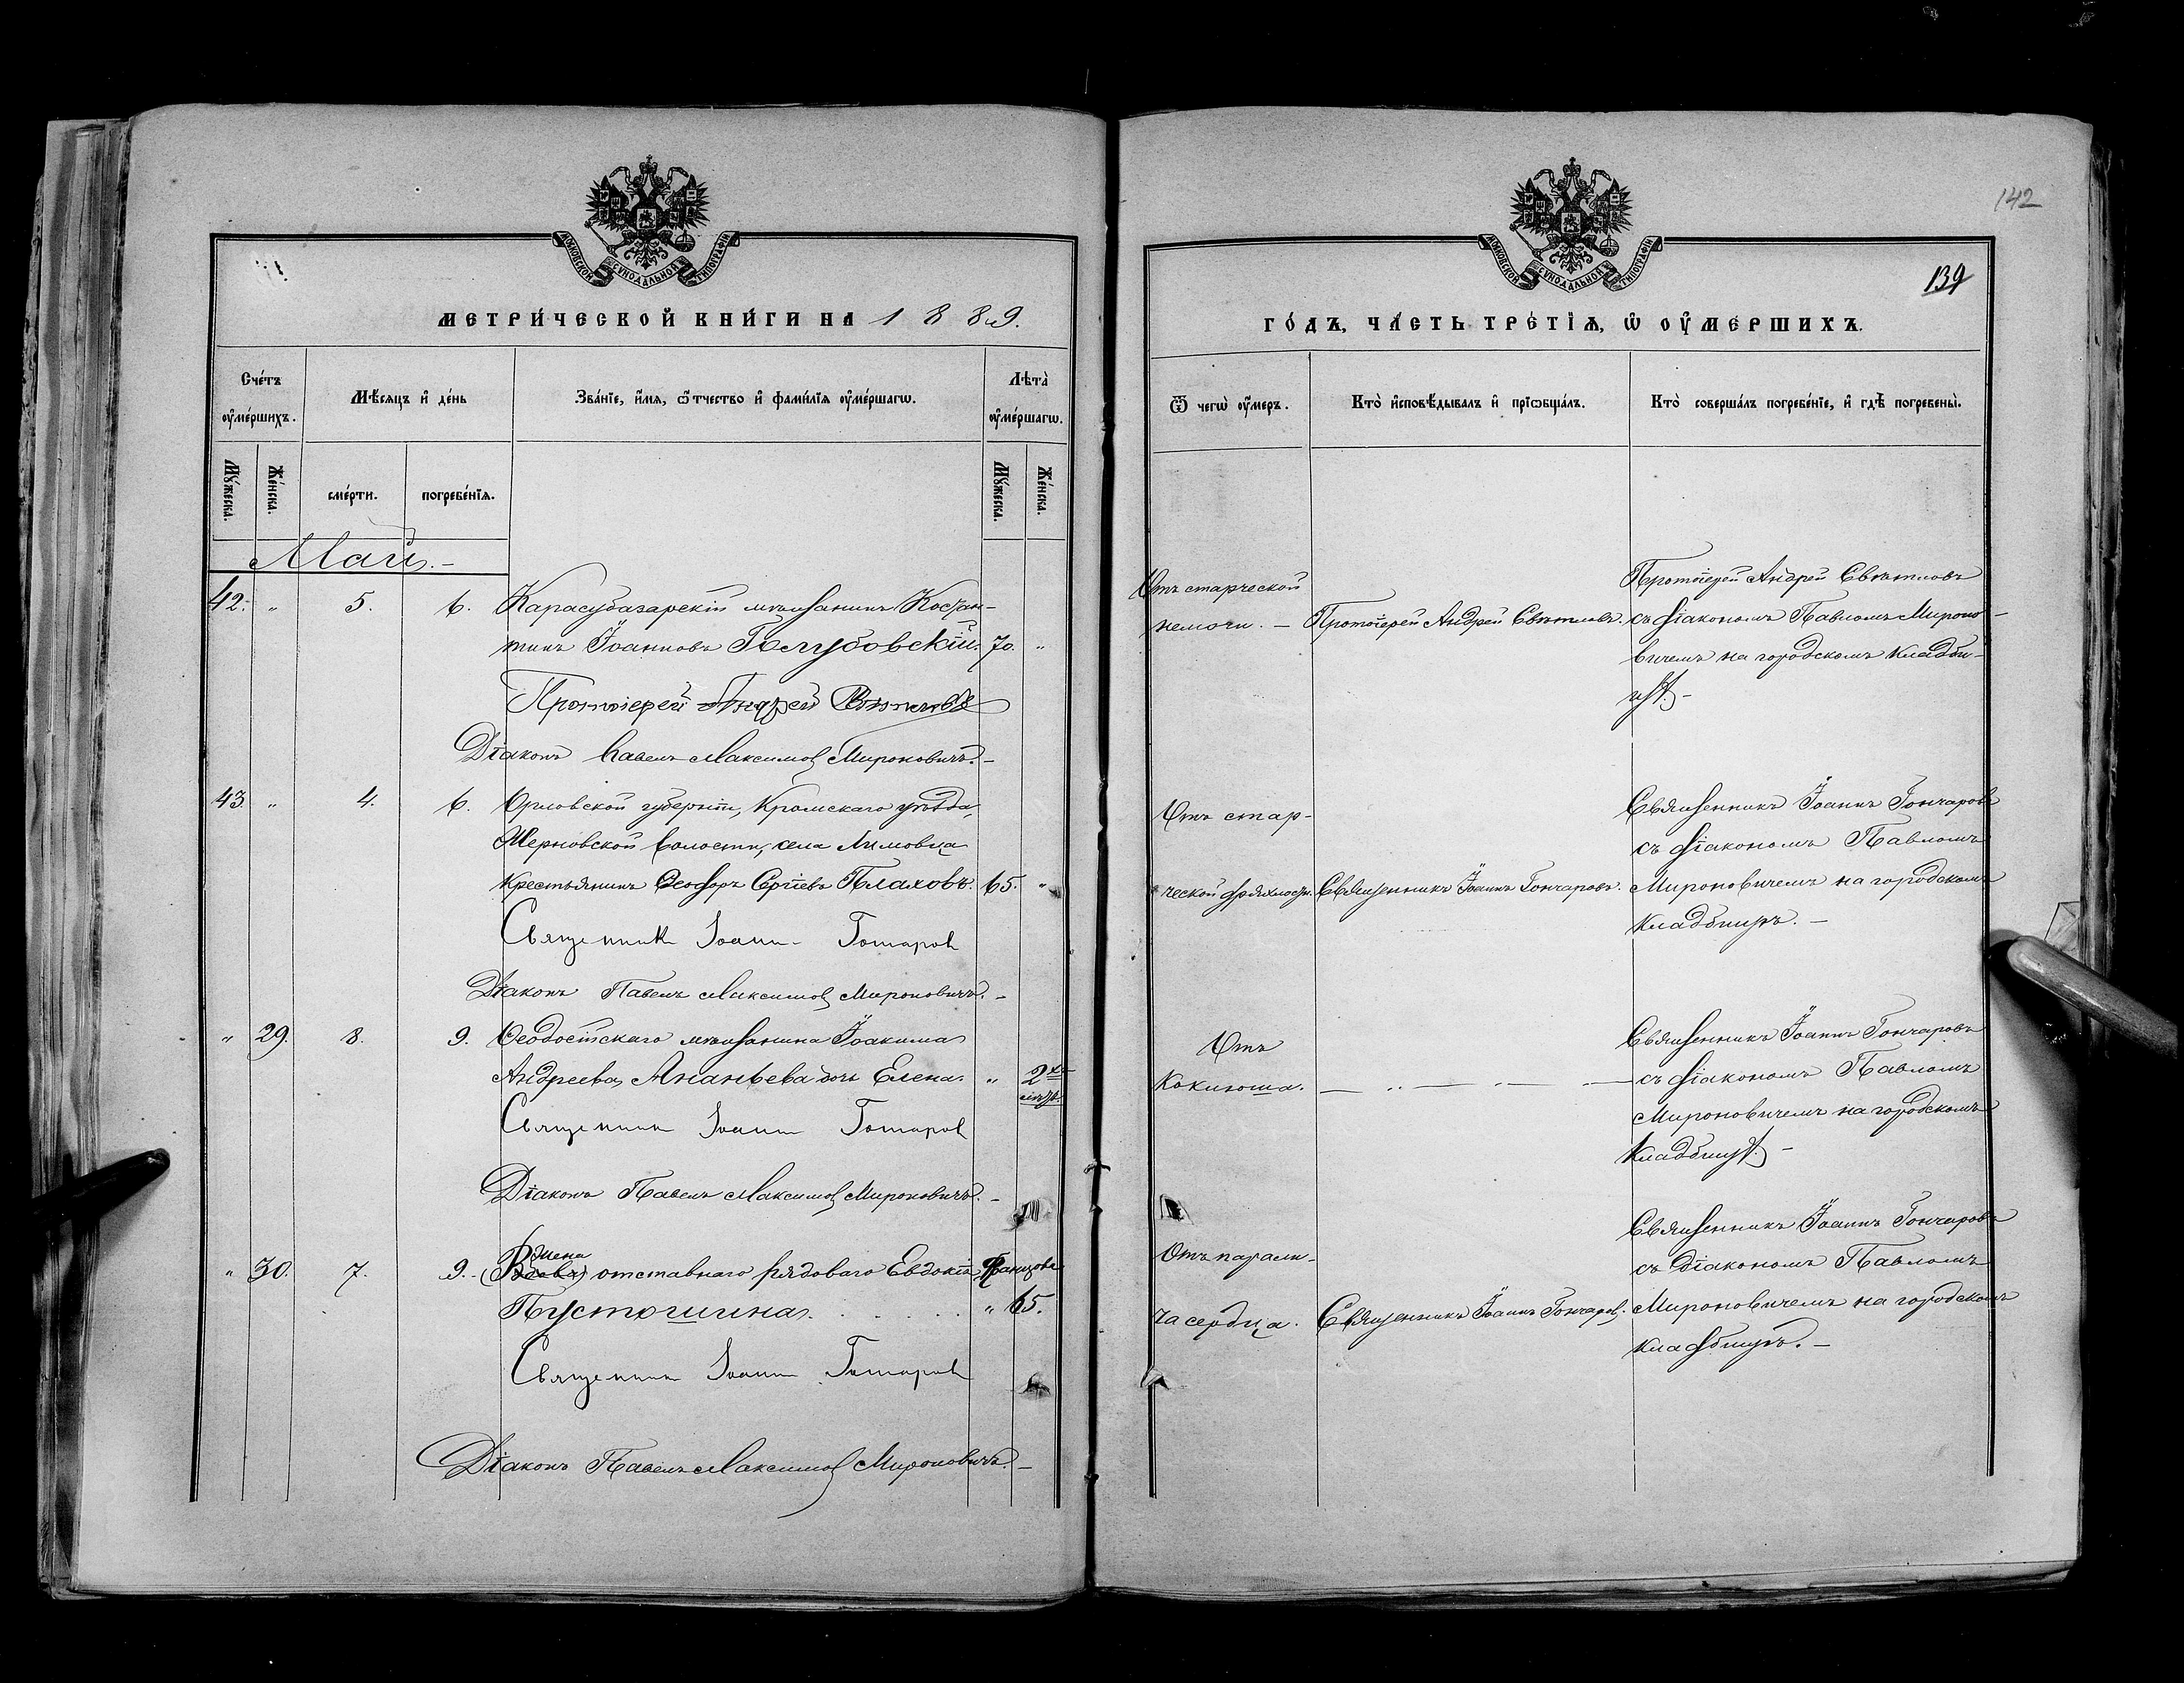 142
139
МОСКОВСКОЙ СѴНОДАЛЬНОЙ ТИПОГРАФІИ
МЕТРИ́ЧЕСКОЙ КНИ́ГИ НА 1889.
Сче́тъ ᲂу҆ме́ршихъ.
Мѣ́сяцъ и҆ де́нь
Зва́нїе, и҆́мя, ѿтчество и҆ фамилїя ᲂу҆ме́ршагѡ.
Лѣта̀ ᲂу҆ме́ршагѡ.
Мꙋ́жеска.
Же́нска.
сме́рти.
погребе́нїя.
Мꙋ́жеска.
Же́нска.
Май.-
42. " 5. 6. Карасубазарскій мѣщанинъ Костан-
тинъ Іоанновъ Голубовскій. 70. "
Протоіерей Андрей Свѣтловъ
Діаконъ Павелъ Максимов Мироновичъ.-
43. " 4. 6. Орловской губерніи, Кромскаго уѣзда,
волости, села Лимовца
крестьянинъ Ѳеодоръ Сергіевъ Плаховъ. 65. "
Священникъ Іоаннъ Гончаров
Діаконъ Павелъ Максимов Мироновичъ.-
" 29. 8. 9. Ѳеодосійскаго мѣщанина Іоакима
Андреева Ананьева дочь Елена. " 2хъ
Священник Іоанн Гончаров
Діаконъ Павелъ Максимов Мироновичъ.-
жена
" 30. 7. 9. (Вдова) отставнаго рядоваго Евдокія
Пустошина. " 65.
Священник Іоанн Гончаров
Діаконъ Павелъ Максимов Мироновичъ.-
МОСКОВСКОЙ СѴНОДАЛЬНОЙ ТИПОГРАФІИ
ГО́ДЪ, ЧА́СТЬ ТРЕ́ТІѦ, Ѡ҆ ОУ҆МЕ́РШИХЪ.
Ѿ чегѡ̀ ᲂу҆́меръ.
Кто̀ и҆сповѣ́дывалъ и҆ прїѡбща́лъ.
Кто̀ соверша́лъ погребе́нїе, и҆ гдѣ̀ погребены̀.
Отъ старческой
немочи. -
Протоіерей Андрей Свѣтловъ.
Протоіерей Андрей Свѣтловъ
съ діакономъ Павломъ Мироно-
вичемъ на городскомъ кладби-
щѣ -
Отъ стар-
ческой дряхлости.
Священникъ Іоаннъ Гончаровъ.
Священникъ Іоаннъ Гончаровъ
съ діакономъ Павломъ
Мироновичемъ на городскомъ
кладбищѣ. -
Отъ
коклюша.
Священникъ Іоаннъ Гончаровъ
съ діакономъ Павломъ
Мироновичемъ на городскомъ
кладбищѣ. -
Отъ парали-
ча сердца.
Священникъ Іоаннъ Гончаров.
Священникъ Іоаннъ Гончаровъ
съ діакономъ Павломъ
Мироновичемъ на городскомъ
кладбищѣ. -